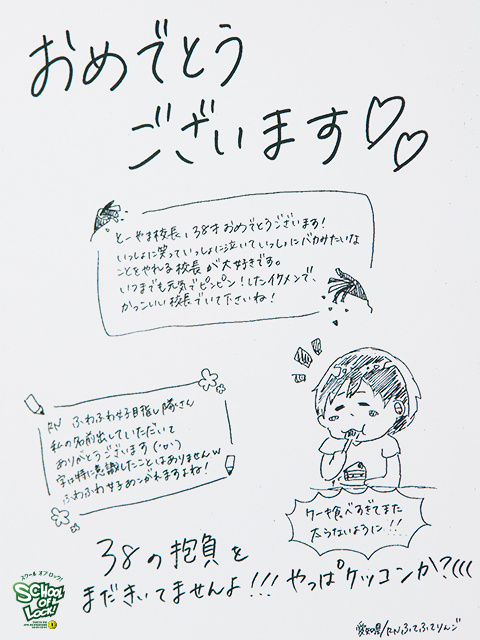 おめでとう
ございます♡♡
とーやま校長、38才おめでとうございます!
いっしょに笑っていっしょに泣いていっしょにバカみたいな
ことをやれる校長が大好きです。
いつまでも元気でピンピン!したイケメンで、
かっこいい校長でいて下さいね!
RN ふわふわ女子目指し隊さん
私の名前出していただいて
ありがとうございます('ω')
字は特に意識したことはありませんw
ふわふわ女子あこがれますよね!
ケーキ食べすぎてまた
太らないように!!
38の抱負を
まだきいてませんよ!!! やっぱケッコンか?(((
スクール オブ ロック!
SCHOOL
OF
LOCK!
愛知県/RN ふてふてりんご